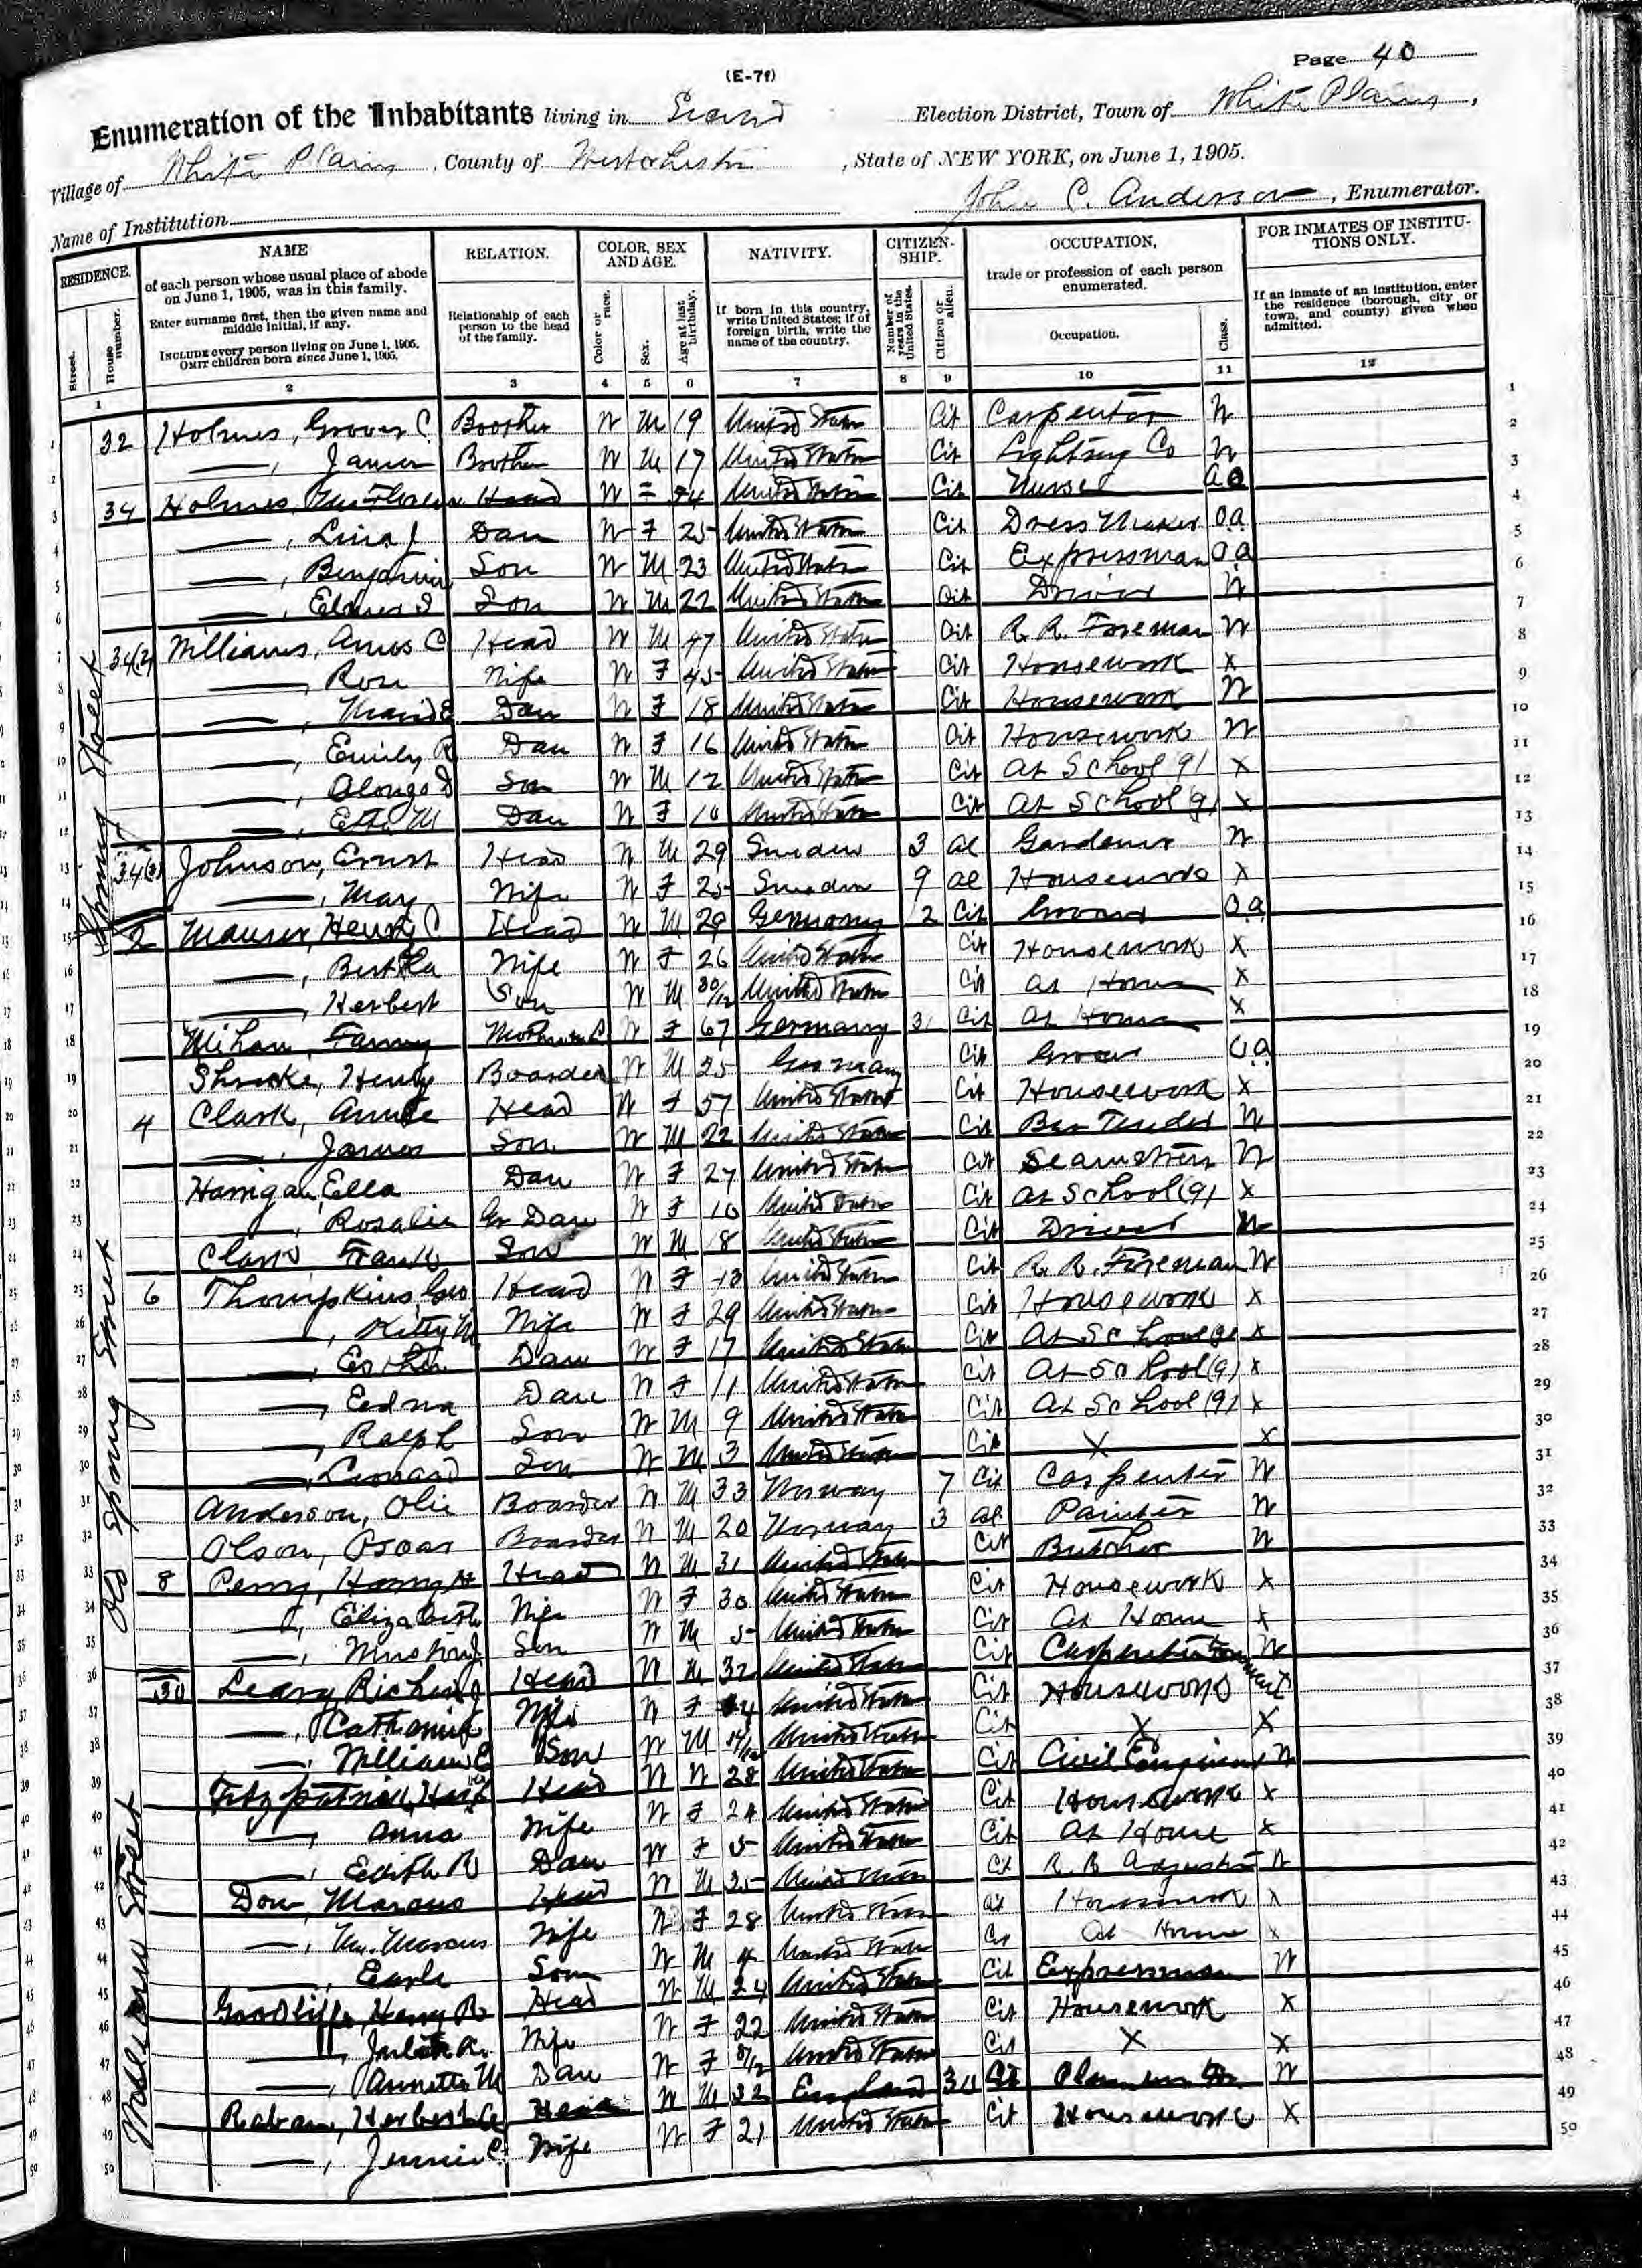 Page 40
(E-7f)
Enumeration of the Inhabitants living in Second Election District, Town of White Plains,
Village of White Plains, County of Westchester, State of NEW YORK, on June 1, 1905.
Name of Institution John C. Anderson, Enumerator.
RESIDENCE. NAME RELATION. COLOR, SEX AND AGE. NATIVITY. CITIZENSHIP. OCCUPATION, FOR INMATES OF INSTITUTIONS ONLY.
Street. House number. of each person whose usual place of abode on June 1, 1905, was in this family. Enter surname first, then the given name and middle initial, if any. INCLUDE every person living on June 1, 1905. OMIT children born since June 1, 1905. Relationship of each person to the head of the family. Color or race. Sex. Age at last birthday. If born in this country, write United States; if of foreign birth, write the name of the country. Number of years in the United States. Citizen or alien. trade or profession of each person enumerated. Occupation. Class. If an inmate of an institution, enter the residence (borough, city or town, and county) given when admitted.
1 2 3 4 5 6 7 8 9 10 11 12
Spring Street
1 32 Holmes, Grover C Brother W M 19 United States Cit Carpenter W 1
2 —, James Brother W M 17 United States Cit Lighting Co W 2
3 34 Holmes, Mrs Head W F United States Cit Nurse 3
4 —, Lina J Dau W F 25 United States Cit Dress Maker O.a 4
5 —, Benjamin Son W M 23 United States Cit Expressman O.a 5
6 —, Elmer Son W M 22 United States Cit Driver W 6
7 34(2) Williams, Amos C Head W M 47 United States Cit R. R. Foreman W 7
8 —, Rose Wife W F 45 United States Cit Housework X 8
9 —, Maud E Dau W F 18 United States Cit Housework W 9
10 —, Emily R Dau W F 16 United States Cit Housework W 10
11 —, Alonzo D Son W M 12 United States Cit At School (9) X 11
12 —, M Dau W F 10 United States Cit At School (9) X 12
13 34(3) Johnson, Ernst Head W M 29 Sweden 3 Al Gardener W 13
14 —, May Wife W F 25 Sweden 9 Al Housework X 14
Old Spring Street
15 2 Mauser, Henry C Head W M 29 Germany 12 Cit Grocer O.a 15
16 —, Bertha Wife W F 26 United States Cit Housework X 16
17 —, Herbert Son W M United States Cit At Home X 17
18 Fanny W F 67 Germany Cit At Home X 18
19 Henry Boarder W M 25 Germany Cit Grocer O.a 19
20 4 Clark, Annie Head W F 57 United States Cit Housework X 20
21 —, James Son W M 22 United States Cit Bar Tender W 21
22 Harrigan, Ella Dau W F 27 United States Cit Seamstress W 22
23 —, Rosalie Gr Dau W F 10 United States Cit At School (9) X 23
24 Clark Frank Son W M 18 United States Cit Driver W 24
25 6 Thompkins, Geo Head W F United States Cit R. R. Foreman W 25
26 —, Kitty M Wife W F 29 United States Cit Housework X 26
27 —, Esther Dau W F United States Cit At School (9) X 27
28 —, Eedna Dau W F 11 United States Cit At School (9) X 28
29 —, Ralph Son W M 9 United States Cit At School (9) X 29
30 —, Leonard Son W M 3 United States Cit X X 30
31 Anderson, Olie Boarder W M 33 Norway 7 Cit Carpenter W 31
32 Olson, Oscar Boarder W M 20 Norway 3 Al Painter W 32
33 8 Perry, Harry H Head W M 31 United States Cit Butcher W 33
34 —, Elizabeth Wife W F 30 United States Cit At Housework X 34
35 —, Son W M 5 United States Cit At Home X 35
Madison Street
36 30 Leary Richard J Head W M 32 United States Cit Carpenter W 36
37 —, Catharine Wife W F United States Cit Housework 37
38 —, William E Son W M United States Cit X X 38
39 Fitzpatrick, Head W 28 United States Cit Civil Engineer W 39
40 —, Anna Wife W F 24 United States Cit Housework X 40
41 —, Edith R Dau W F 5 United States Cit At House X 41
42 Dow, Marcus Head W M 25 United States Cit R. R. W 42
43 —, Mrs. Marcus Wife W F 28 United States Cit Housework X 43
44 —, Earle Son W M 4 United States Cit At Home X 44
45 Henry R. Head W M 24 United States Cit Expressman W 45
46 —, Wife W F 22 United States Cit Housework X 46
47 —, Annetta M Dau W F 8/12 United States Cit X X 47
48 Herbert Head W M 32 England Cit W 48
49 —, Jennie C. Wife W F 21 United States Cit Housework X 49
50 50